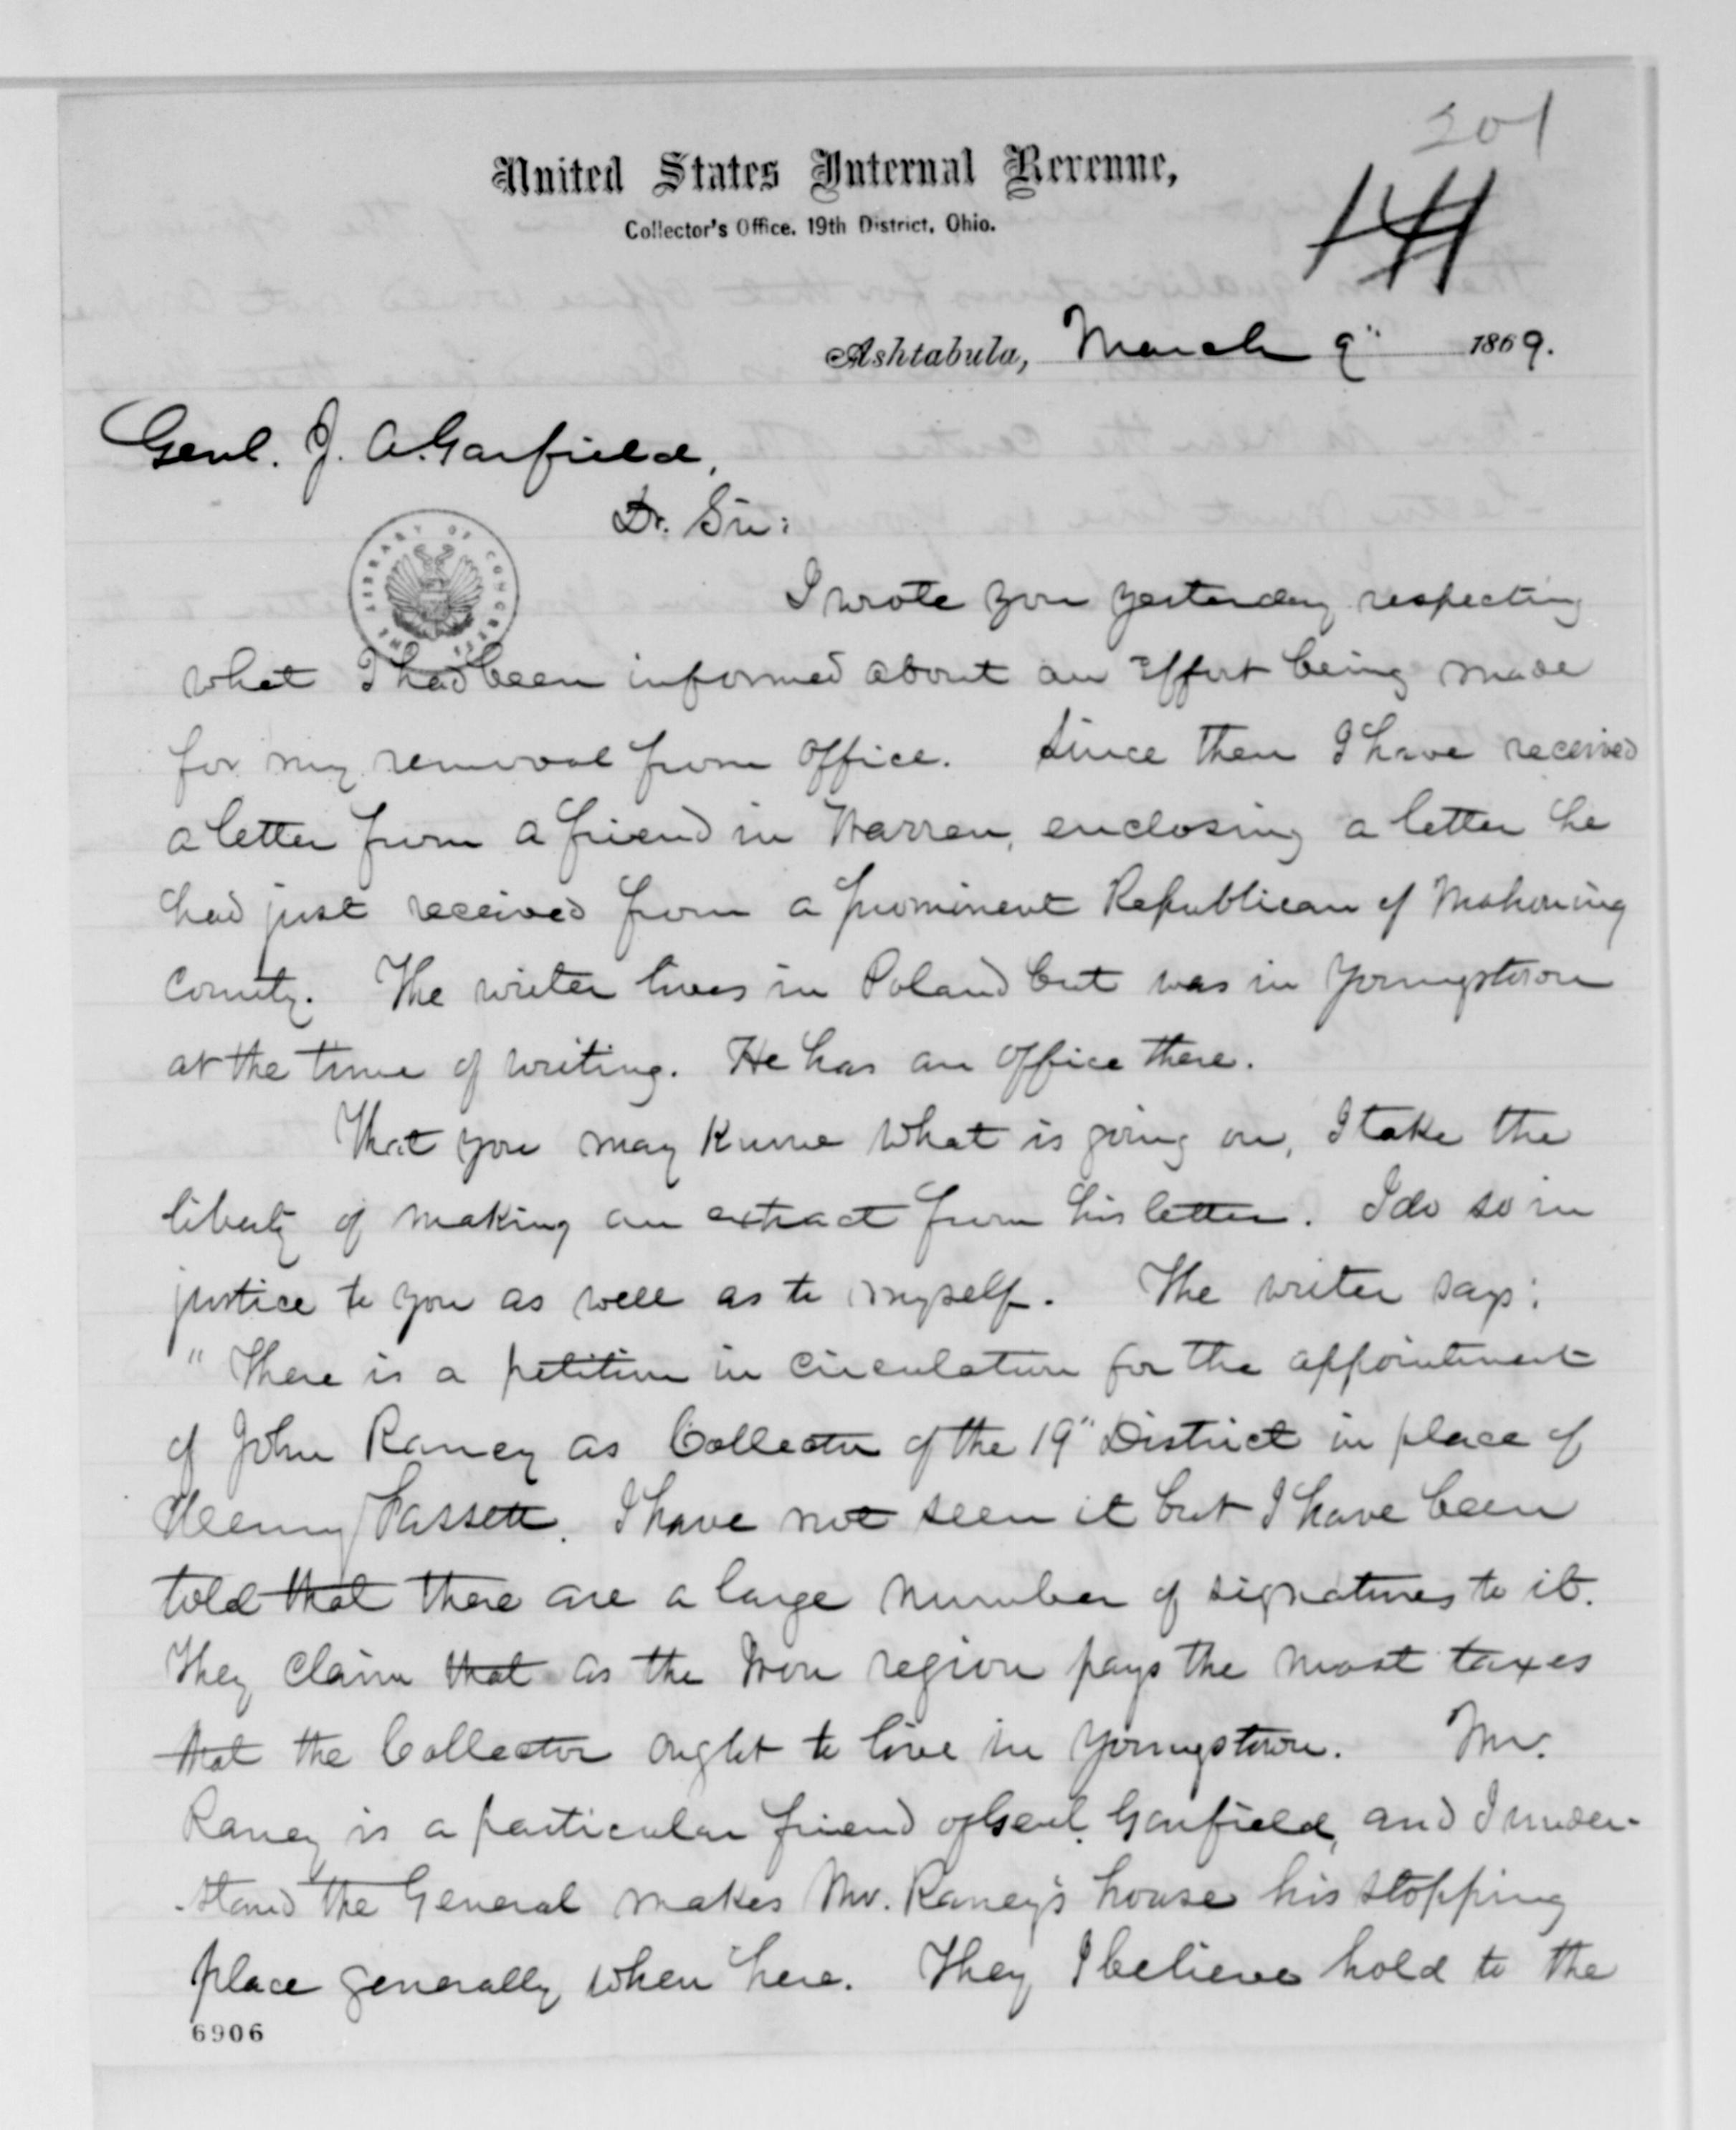 201
144
United States Internal Revenue,
Collector's Office, 19th District, Ohio.
Ashtabula, March 9" 1869.
Genl. J. A. Garfield,
Dr. Sir:
THE LIBRARY OF CONGRESS
I wrote you yesterday respecting
what I had been informed about an effort being made
for my removal from office. Since then I have received
a letter from a friend in Warren, enclosing a letter he
had just received from a prominent Republican of Mahoning
County. The writer lives in Poland but was in Youngstown
at the time of writing. He has an office there.
That you may know what is going on, I take the
liberty of making an extract from his letter. I do so in
justice to you as well as to myself. The writer says:
"There is a petition in circulation for the appointment
of John Raney as Collector of the 19" District in place of
Henry Fassett. I have not seen it but I have been
told that there are a large number of signatures to it.
They claim that as the Iron region pays the most taxes
that the Collector ought to live in Youngstown. Mr.
Raney is a particular friend of Genl. Garfield, and I under-
-stand the General makes Mr. Raney's house his stopping
place generally when here. They I believe hold to the
6906